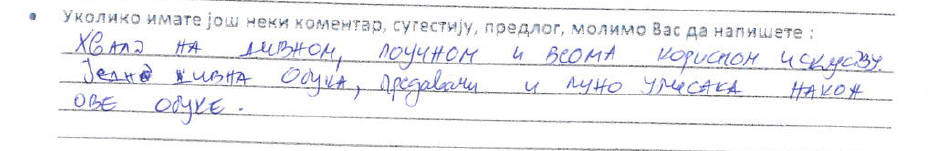 • Уколико имате још неки коментар, сугестију, предлог, молимо Вас да напишете :
Хвала на дивном, поучном и веома корисном искуству
Једна дивна обука, предавачи и пуно утисака након
ове обуке.